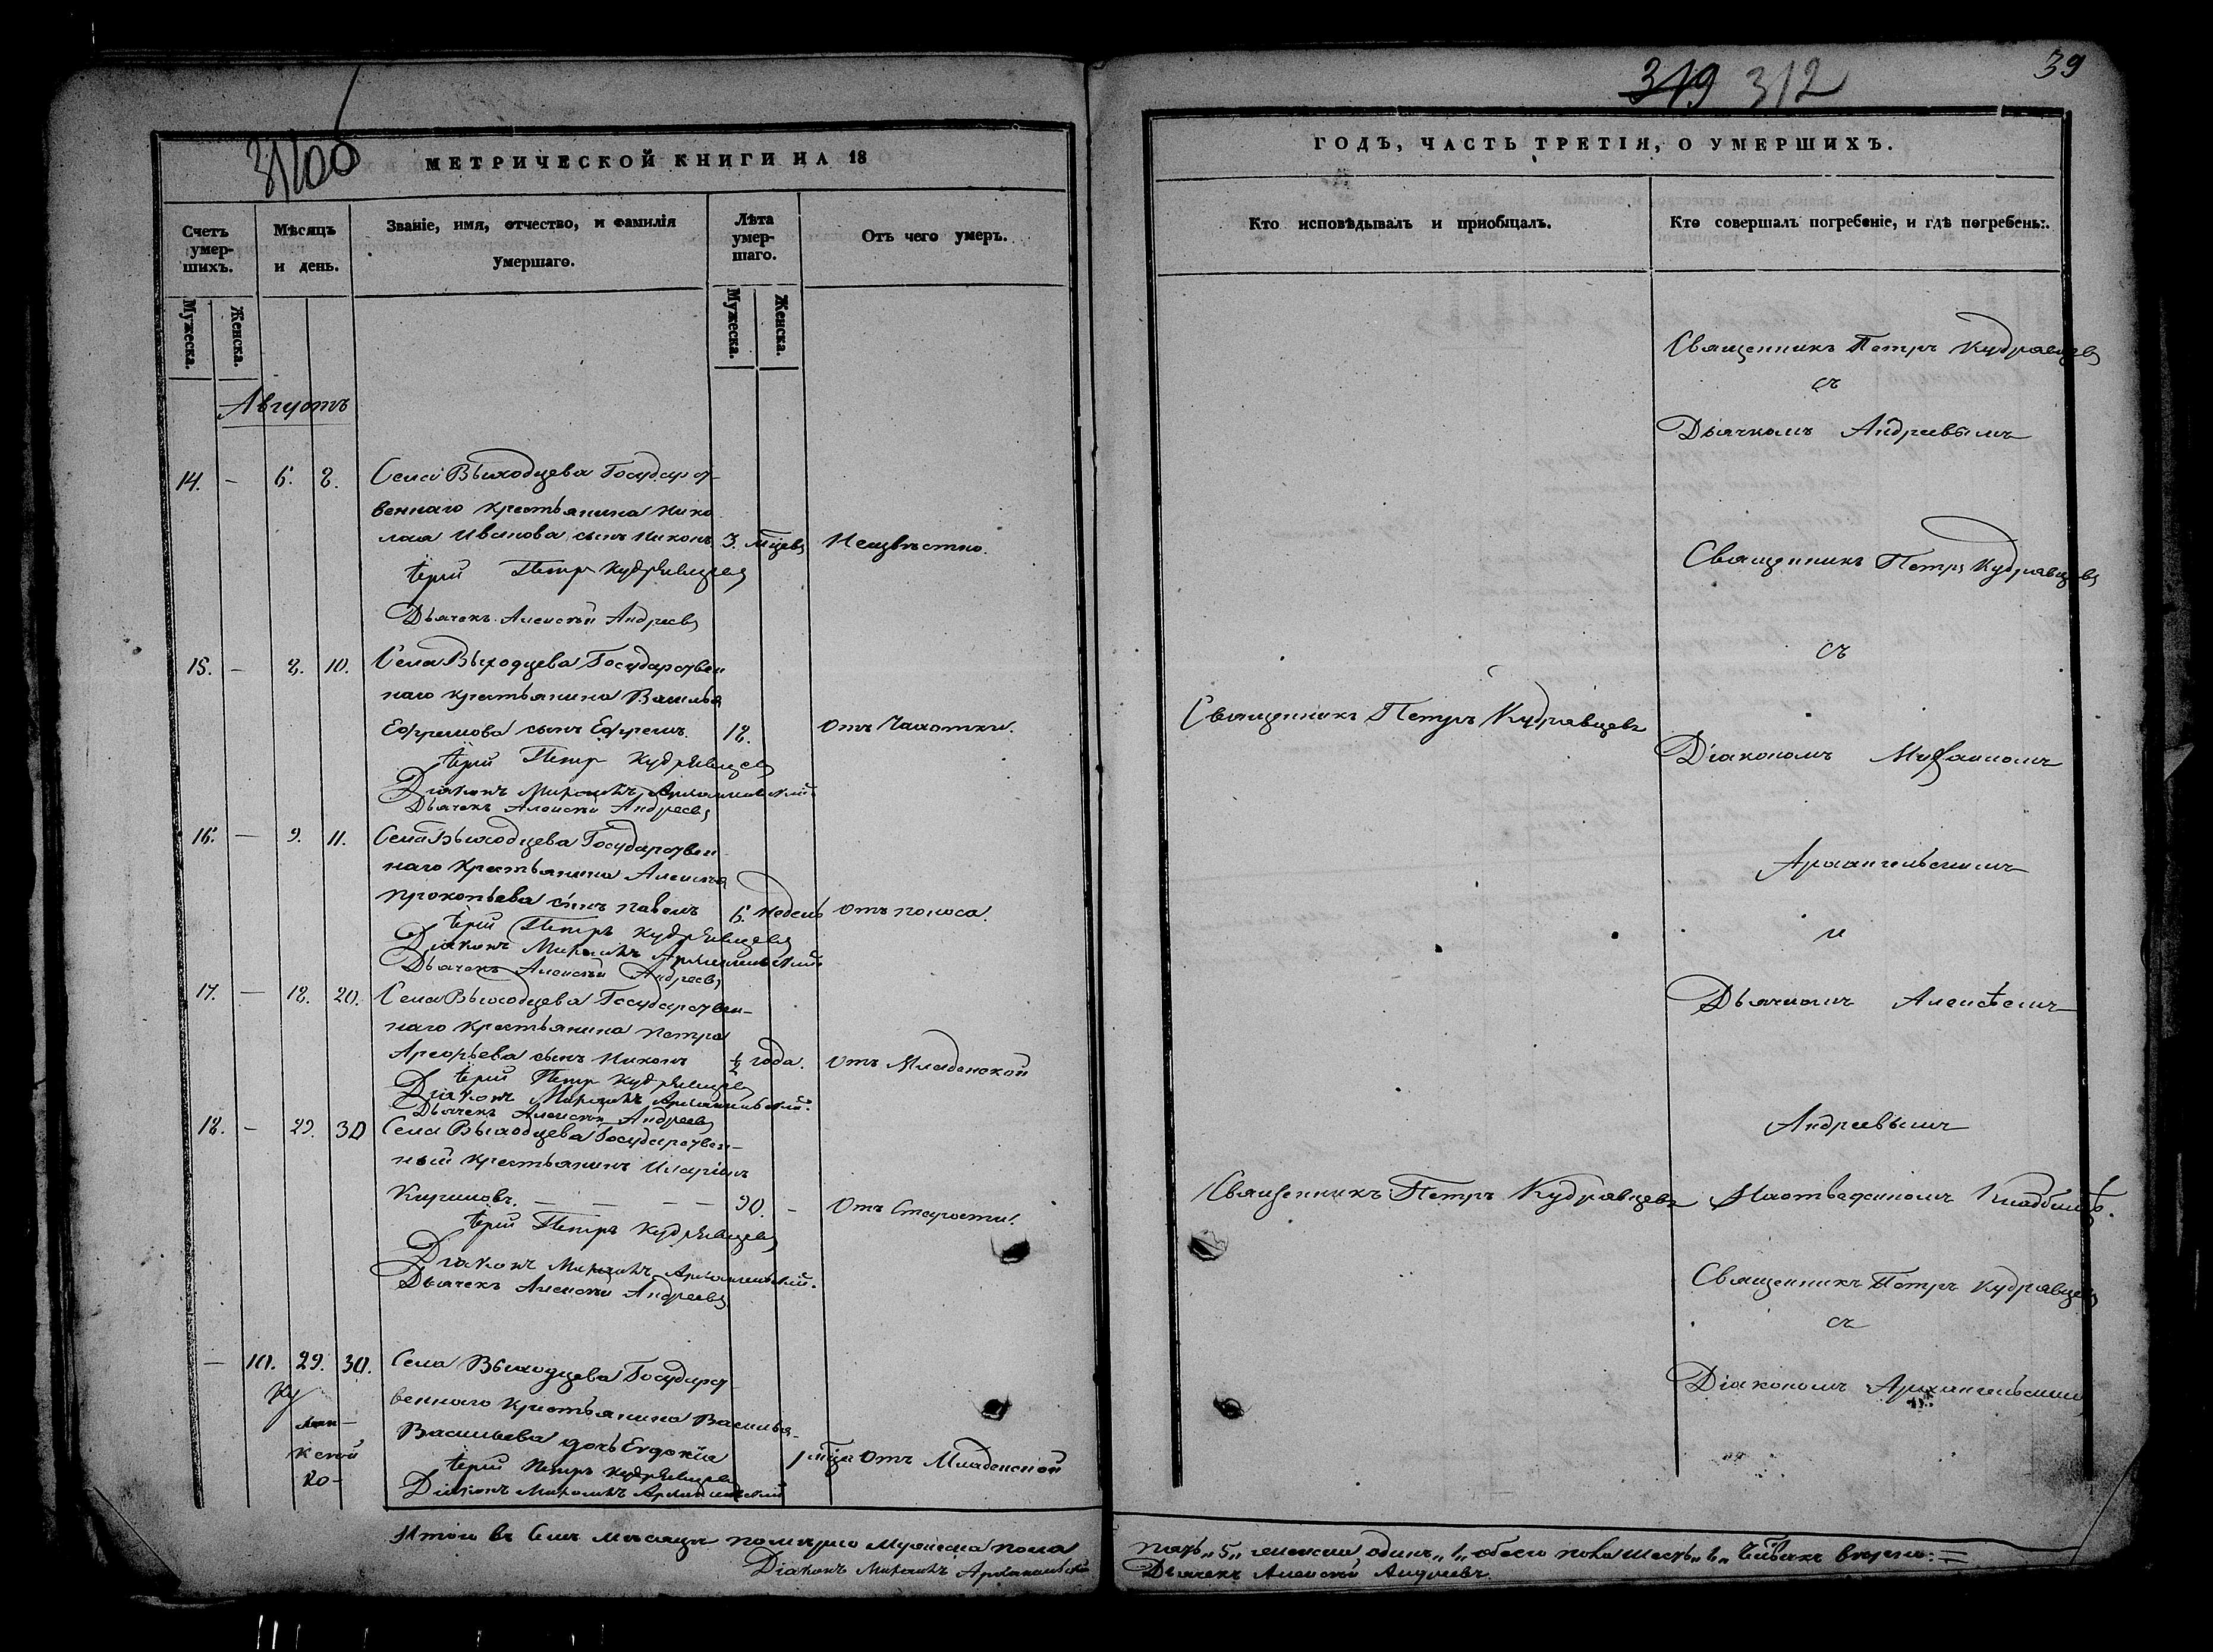 МЕТРИЧЕСКОЙ КНИГИ НА 18
Счетъ умер-шихъ.
Мѣсяцъ и день.
Званіе, имя, отчество, и фамилія умершаго.
Лѣта умер-шаго.
Отъ чего умеръ.
Мужеска.
Женска.
Мужеска.
Женска.
Августъ
14. — 6. 8. Села Выходцева Государст-
веннаго крестьянина Нико
лая Иванова сынъ Никонъ 3. мцевъ Неизвѣстно.
Іерей Петръ Кудрявцевъ
Дьячекъ Алексѣй Андреевъ
15. — 8. 10. Села Выходцева Государствен
наго крестьянина Василья
Ефремова сынъ Ефремъ. 18. Отъ Чахотки.
Іерей Петръ Кудрявцевъ
Діаконъ Михаилъ Архангельскій
Дьячекъ Алексѣй Андреевъ
16. — 9. 11. Села Выходцева Государствен
наго Крестьянина Алексѣя
Прокопьева сынъ Павелъ 6. недель отъ поноса.
Іерей Петръ Кудрявцевъ
Діаконъ Михаилъ Архангельскій
Дьячекъ Алексѣй Андреевъ
17. — 18. 20. Села Выходцева Государствен-
наго крестьянина Петра
сынъ Никонъ ½ года. отъ Младенской
Іерей Петръ Кудрявцевъ
Діаконъ Михаилъ Архангельскій.
Дьячекъ Алексѣй Андреевъ
18. — 29. 30 Села Выходцева Государствен-
ный крестьянинъ Иларіонъ
Кириловъ. — — — — 90. — Отъ Старости.
Іерей Петръ Кудрявцевъ
Діаконъ Михаилъ Архангельскій.
Дьячекъ Алексѣй Андреевъ
— 10. 29. 30. Села Выходцева Государст
веннаго крестьянина Василья
Васильева дочь Евдокія
1 мца Отъ Младенской
Іерей Петръ Кудрявцевъ
Діаконъ Михаилъ Архангельскій
Итого въ семъ месяце померло мужеска пола
Діаконъ Михаилъ Архангельскій
319 312
39
ГОДЪ, ЧАСТЬ ТРЕТІЯ, О УМЕРШИХЪ.
Кто исповѣдывалъ и пріобщалъ.
Кто совершалъ погребеніе, и гдѣ погребены.
Священникъ Петръ Кудрявцевъ
съ
Дьячкомъ Андреевымъ
Священникъ Петръ Кудрявцевъ
съ
Священникъ Петръ Кудрявцевъ
Діакономъ Михаиломъ
Архангельскимъ
и
Дьячкомъ Алексѣемъ
Андреевымъ
Священникъ Петръ Кудрявцевъ
На Кладбищѣ.
Священникъ Петръ Кудрявцевъ
съ
Діакономъ Архангельскимъ
пять „5„ женска одинъ „1„ обоего пола шесть „6„
Дьячекъ Алексѣй Андреевъ.